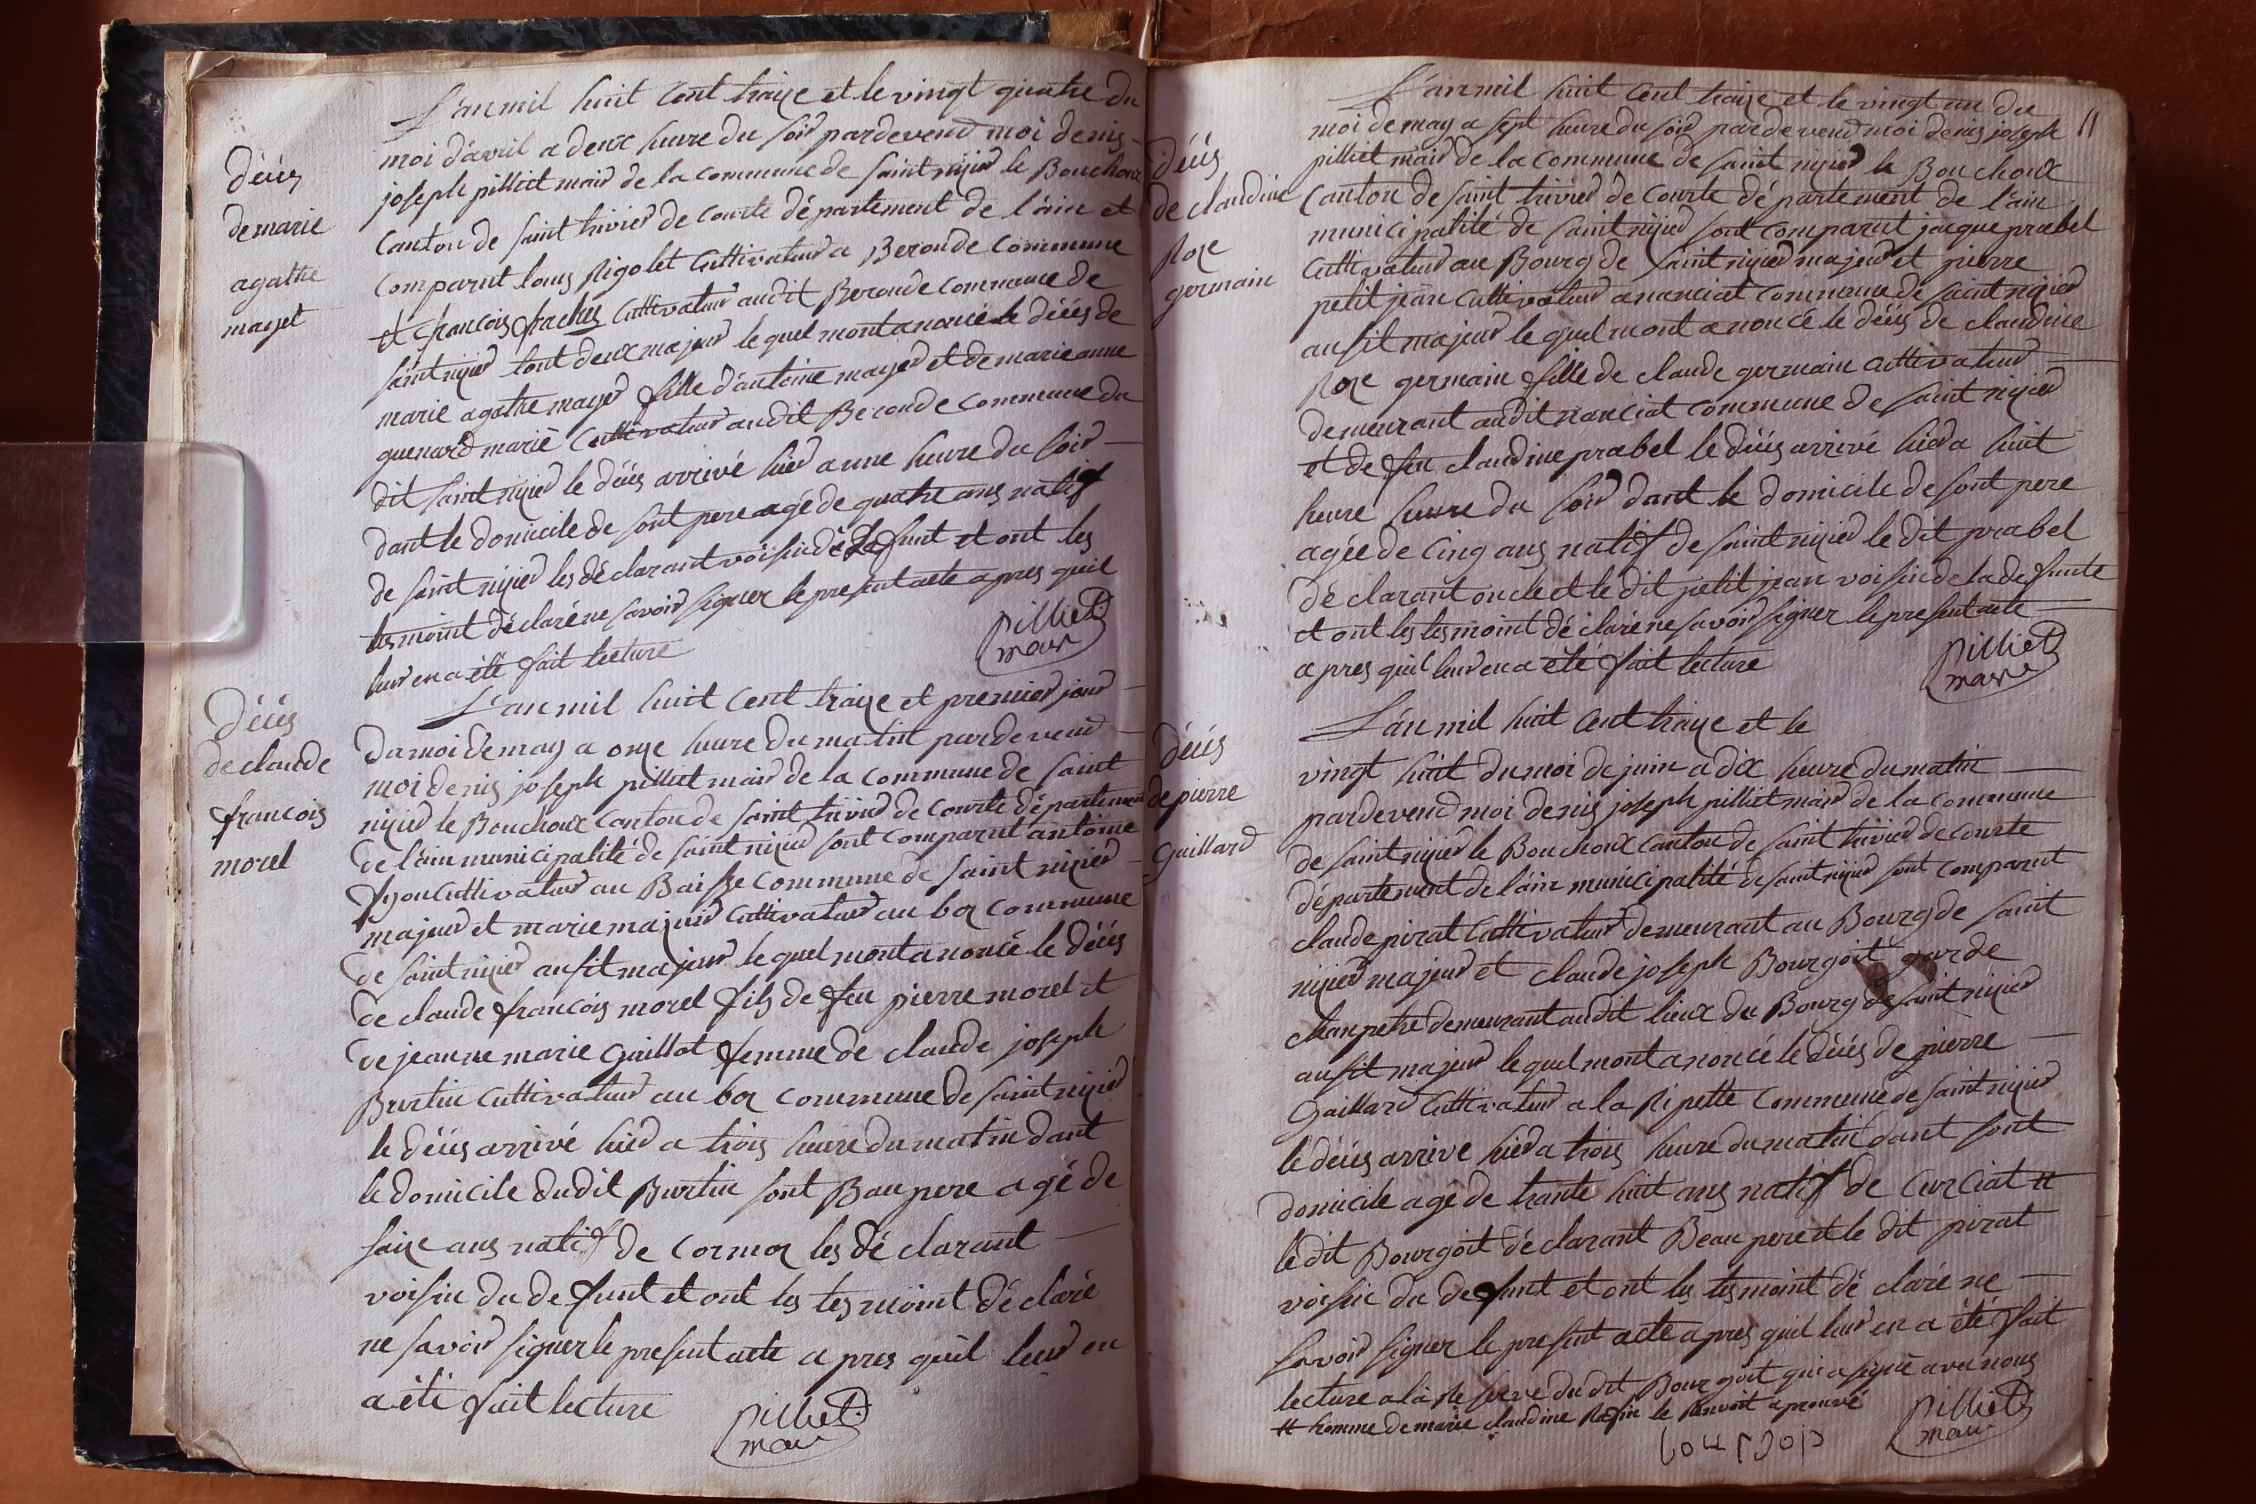 décés
de marie
agathe
mayet
L'an mil huit cent traize et le vingt quatre du
moi d'avril a deux heure du soir pardevend moi denis
joseph pilliet mair de la commune de saint nizier le Bouchoux
canton de saint trivier de courte département de l'ain et
comparut louis Rigolet cultivateur a Beronde commune
et francois fraches cultivateur audit Beronde commune de
saint nizier tout deux majeur le quel mont anoncé le décés de
marie agathe mayer fille d'antoine mayer et de marie anne
quenard marié cultivateur audit Beronde commune du
dit saint nizier le décés arrivé hier a une heure du soir
dant le domicile de sont pere agé de quatre ans natif
de saint nizier les déclarant voisin de la defunt et ont les
tesmoint déclaré ne savoir signer le present acte apres quil
leur en a été fait lecture
pilliet
mair
décés
de claude
francois
morel
L'an mil huit cent traize et premier jour
du moi de may a onze heure du matin pardevend
moi denis joseph pilliet mair de la commune de saint
nizier le Bouchoux canton de saint trivier de courte département
de l'ain municipalité de saint nizier sont comparut antoine
cultivateur au Baisse commune de saint nizier
majeur et marie cultivateur au boz commune
de saint nizier ausit majeur le quel mont anoncé le décés
de claude francois morel fils de feu pierre morel et
de jeanne marie Gaillot femme de claude joseph
Burtin cultivateur au boz commune de saint nizier
le décés arrivé hier a trois heure du matin dant
le domicile dudit Burtin sont Bau pere agé de
saize ans natif de cormoz les déclarant
voisin du defunt et ont les tesmoint déclaré
ne savoir signer le present acte apres quil leur en
a été fait lecture
pilliet
mair
11
décés
de claudine
Roze
germain
L'an mil huit cent traize et le vingt un du
moi de may a sept heure du soir pardevend moi denis joseph
pilliet mair de la commune de saint nizier le Bouchoux
canton de saint trivier de courte département de l'ain
municipalité de saint nizier sont comparut jacque prabel
cultivateur au Bourg de saint nizier majeur et pierre
petit jean cultivateur a nanciat commune de saint nizier
ausit majeur le quel mont anoncé le décés de claudine
Roze germain fille de claude germain cultivateur
demeurant audit nanciat commune de saint nizier
et de feu claudine prabel le décés arrivé hier a huit
heure heure du soir dant le domicile de sont pere
agée de cinq ans natif de saint nizier le dit prabel
déclarant oncle et le dit petit jean voisin de la defunte
et ont les tesmoint déclaré ne savoir signer le present acte
apres quil leur en a été fait lecture
pilliet
mair
décés
de pierre
Gaillard
L'an mil huit cent traize et le
vingt huit du moi de juin a dix heure du matin
pardevend moi denis joseph pilliet mair de la commune
de saint nizier le Bouchoux canton de saint trivier de courte
département de l'ain municipalité de saint nizier sont comparut
claude pirat cultivateur demeurant au Bourg de saint
nizier majeur et claude joseph Bourgoit garde
chanpetre demeurant audit lieux du Bourg de saint nizier
ausit majeur le quel mont anoncé le décés de pierre
Gaillard cultivateur a la Ripette commune de saint nizier
le décés arrive hier a trois heure du matin dant sont
domicile agé de trante huit ans natif de Curciat #
le dit Bourgoit déclarant Beau pere et le dit pirat
voisin du defunt et ont les tesmoint déclaré ne
savoir signer le present acte apres quil leur en a été fait
lecture a la Reserve du dit Bourgoit qui a signé avec nous
# homme de marie claudine Rafin le Renvoit aprouvé
pilliet
mair